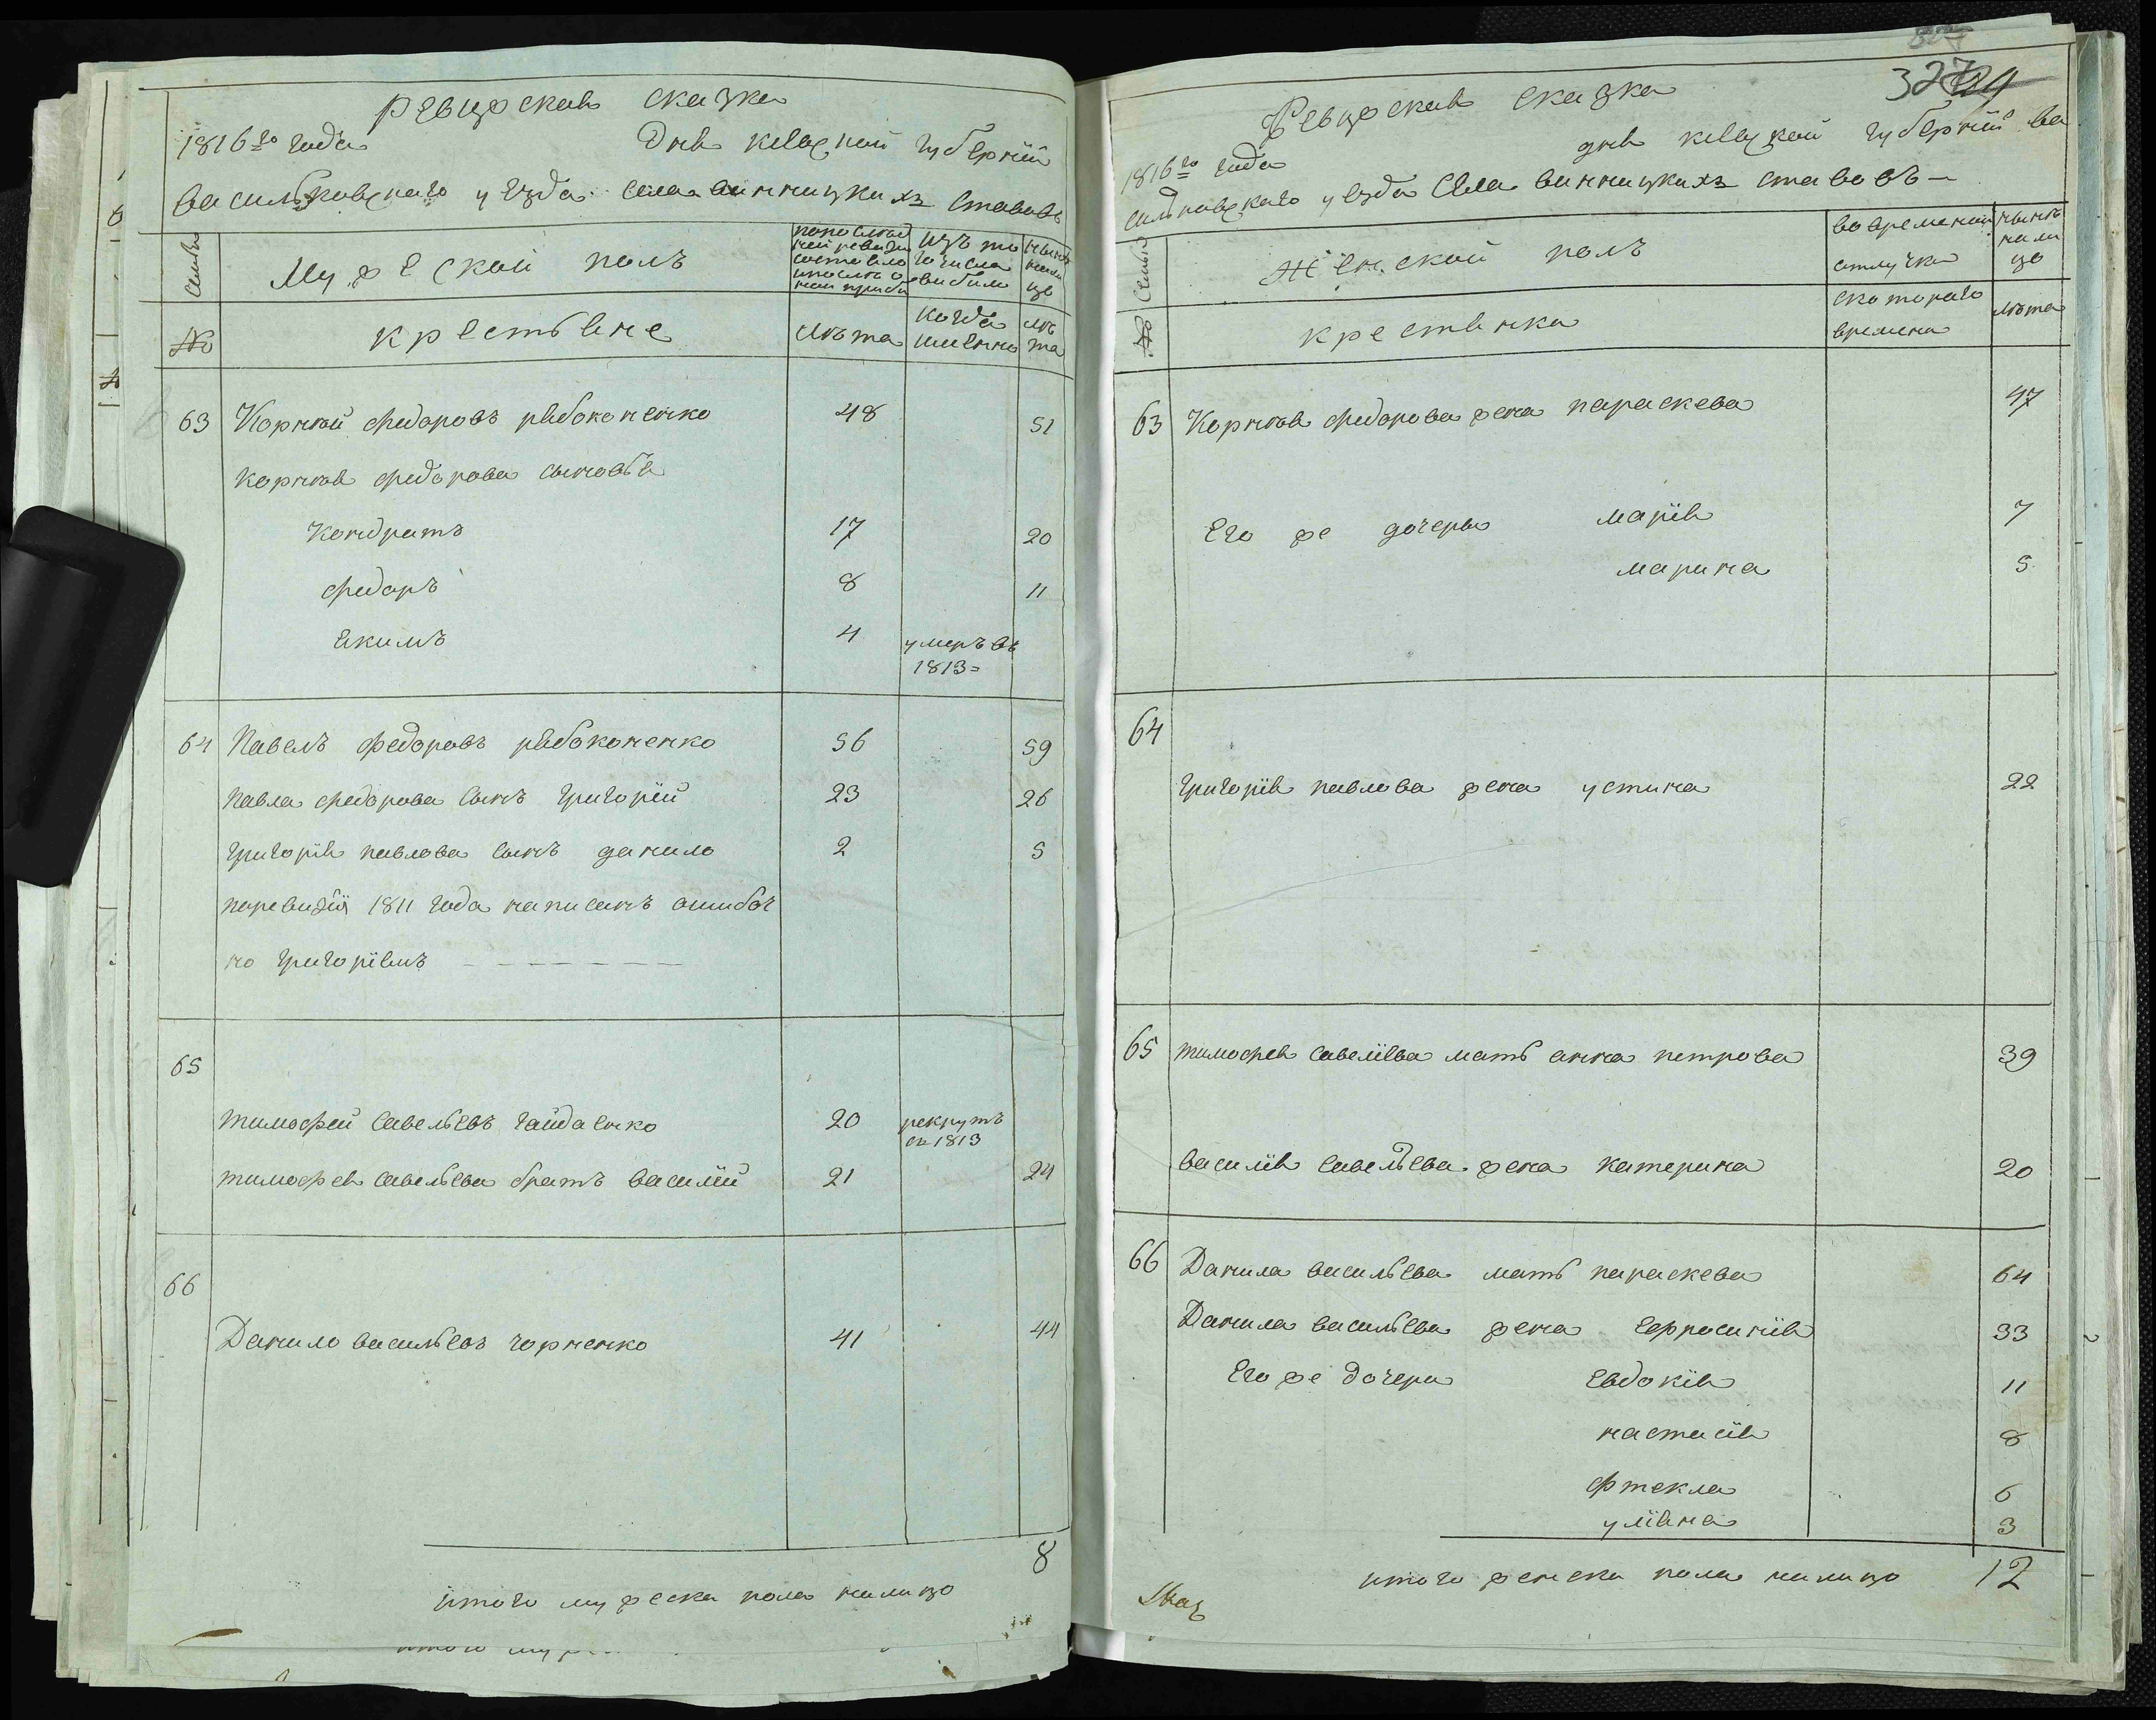 Ревизская сказка
1816го года Дня киевской губернии
васильковскаго уезда села винницкихъ ставовъ
Семьи
Мужеской полъ
по последней ревизии состояло и после оной прибыло
Изъ того числа выбыло
ныне на лицо
№
крестьяне
Лѣта
Когда именно
лѣта
63 Корнѣй федоровъ рябоконенко 48 51
Корнѣя федорова сыновья
Кондратъ 17 20
федоръ 8 11
Якимъ 4 умеръ въ 1813=
64 Павелъ федоровъ рябоконенко 56 59
Павла федорова сынъ григорій 23 26
григорія павлова сынъ данило 2 5
поревизіи 1811 года написанъ ошибоч
но григоріемъ - - - - - - -
65
тимофей савельевъ гайдаенко 20 рекрутъ въ 1813
тимофея савельева братъ василій 21 24
66
Данило васильевъ чорненко 41 44
8
итого мужеска пола налицо
327
Ревизская сказка
1816го года дня киевской губерній ва
сильковскаго уезда Села винницкихъ ставовъ
Семьи
Женской полъ
во временной отлучке
ныне на лицо
№
крестьянка
с котораго времени
лѣта
63 Корнѣя федорова жена параскева 47
Его же дочери марія 7
марина 5
64
григорія павлова жена устина 22
65 тимофея савеліева мать анна петрова 39
василія савельева жена катерина 20
66 Данила васильева мать параскева 64
Данила васильева жена Ефросинія 33
Его же дочери Евдокія 11
настасія 8
фтекла 6
уліяна 3
итого женска пола налицо 12